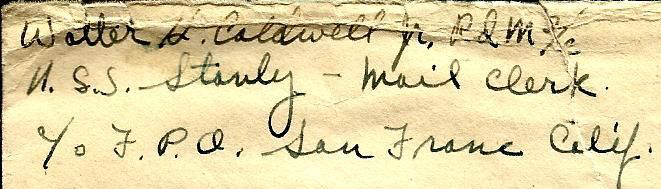 Walter H. Caldwell Jr. RdM 3/c
U.S.S. Stanly - Mail Clerk.
c/o F.P.O. San Franc Calif.